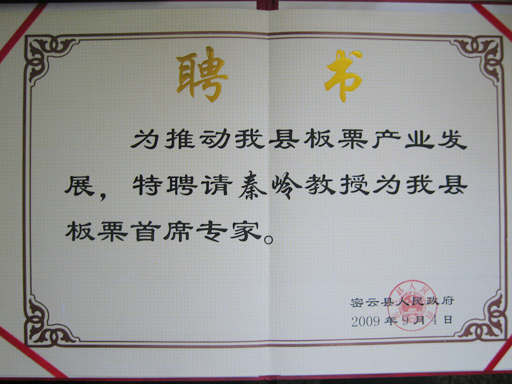 聘 书
为推动我县板栗产业发
展，特聘请秦岭教授为我县
板栗首席专家。
密云县人民政府
2009年9月4日